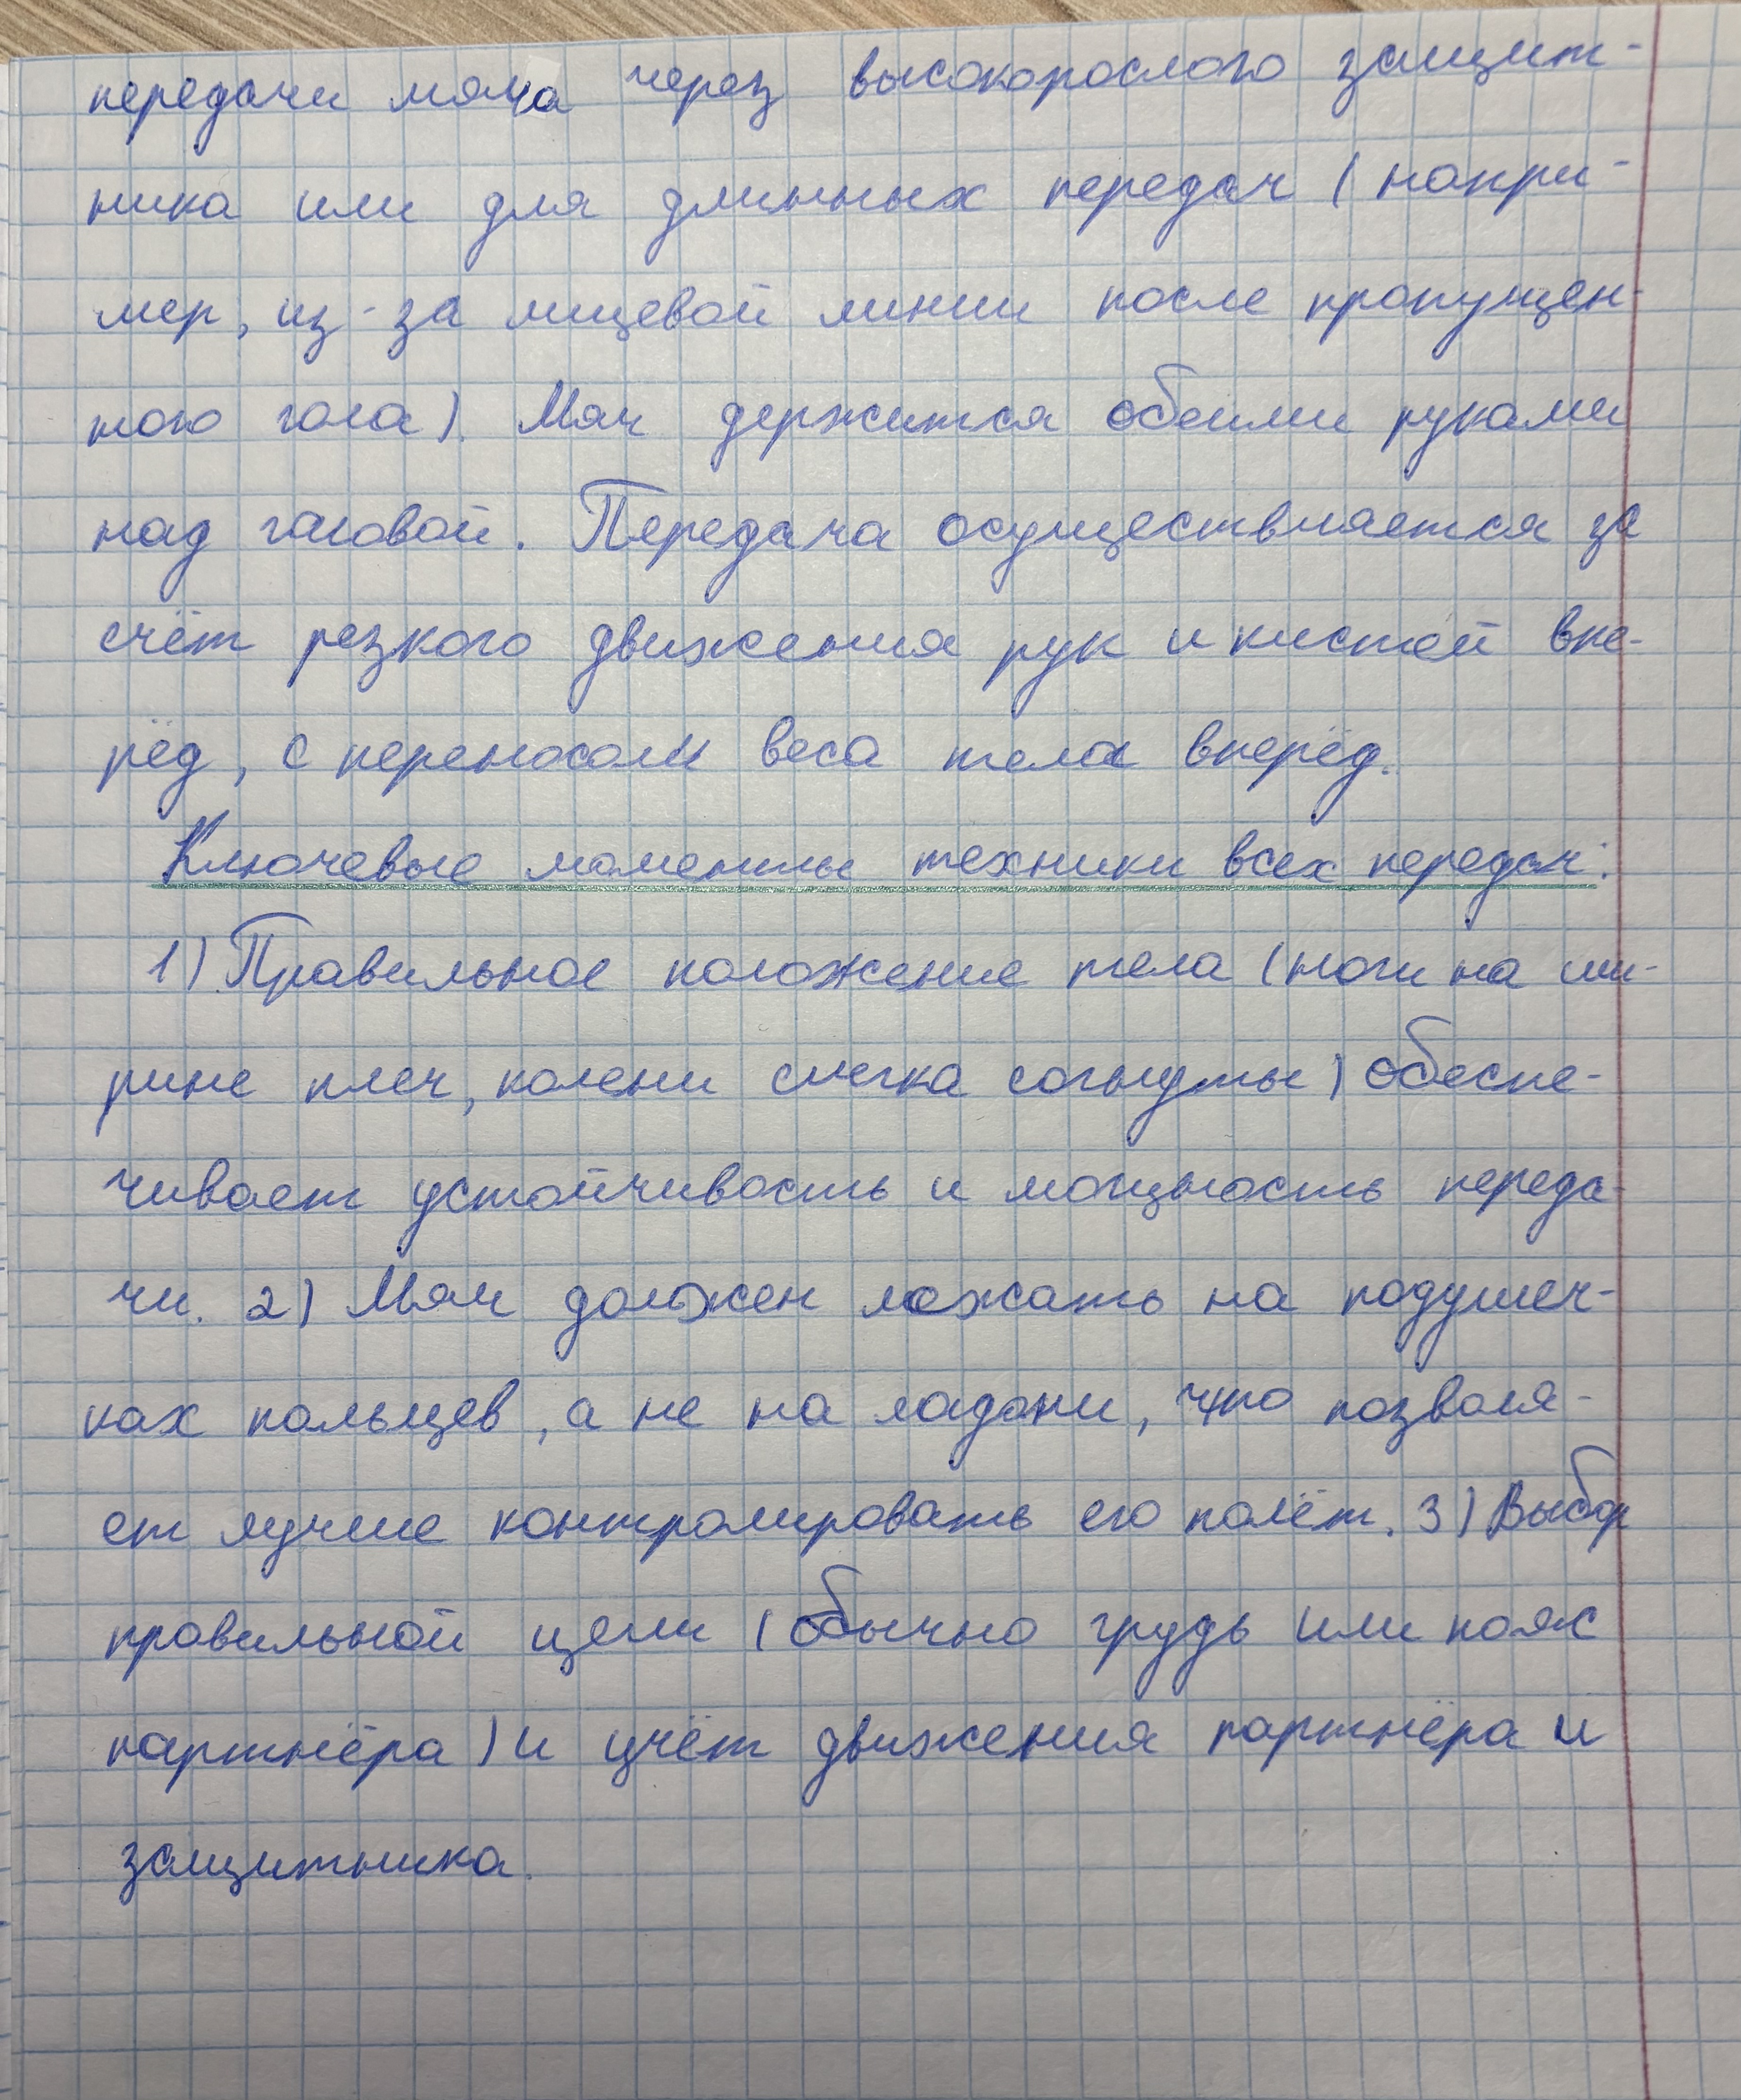 передачи мяча через высокорослого защит-
ника или для длинных передач (напри-
мер, из-за лицевой линии после пропущен-
ного гола). Мяч держится обеими руками
над головой. Передача осуществляется за
счёт резкого движения рук и кистей впе-
рёд, с переносом веса тела вперёд.
Ключевые моменты техники всех передач:
1) Правильное положение тела (ноги на ши-
рине плеч, колени слегка согнуты) обеспе-
чивает устойчивость и мощность переда-
чи. 2) Мяч должен лежать на подушеч-
ках пальцев, а не на ладони, что позволя-
ет лучше контролировать его полёт. 3) Выбор
правильной цели (обычно грудь или пояс
партнёра) и учёт движения партнёра и
защитника.